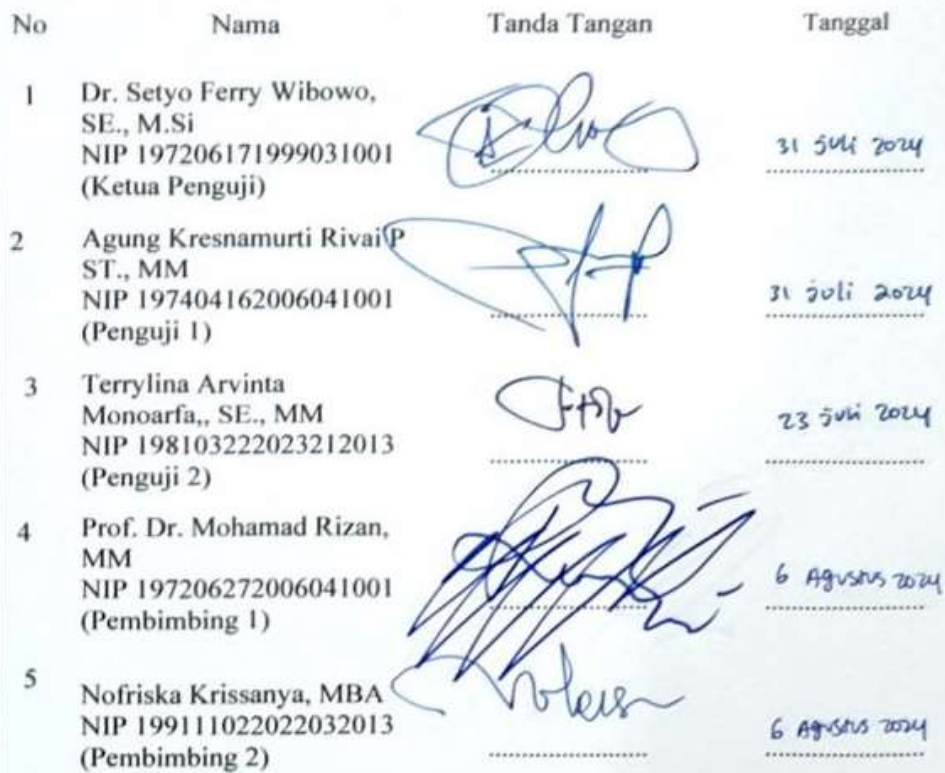 No Nama Tanda Tangan Tanggal
1 Dr. Setyo Ferry Wibowo,
SE., M.Si
NIP 197206171999031001
(Ketua Penguji)
31 juli 2024
2 Agung Kresnamurti Rivai P
ST., MM
NIP 197404162006041001
(Penguji 1)
31 juli 2024
3 Terrylina Arvinta
Monoarfa,, SE., MM
NIP 198103222023212013
(Penguji 2)
23 juli 2024
4 Prof. Dr. Mohamad Rizan,
MM
NIP 197206272006041001
(Pembimbing 1)
6 Agustus 2024
5 Nofriska Krissanya, MBA
NIP 199111022022032013
(Pembimbing 2)
6 Agustus 2024